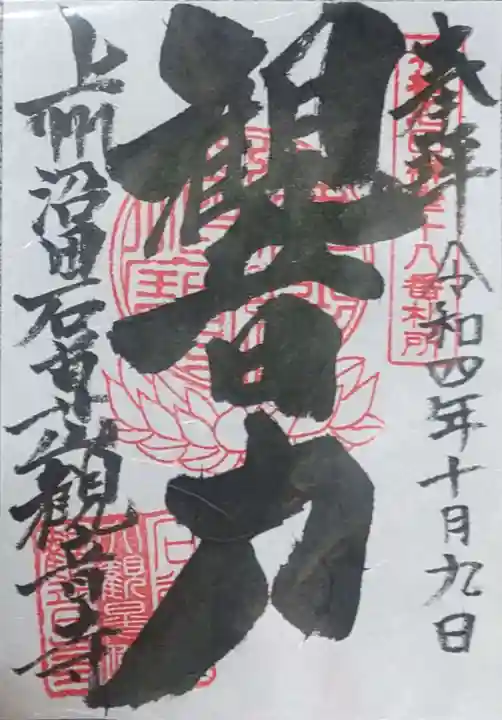 奉拝
令和四年十月九日
十八番札所
観音力
上州沼田石尊山観音寺